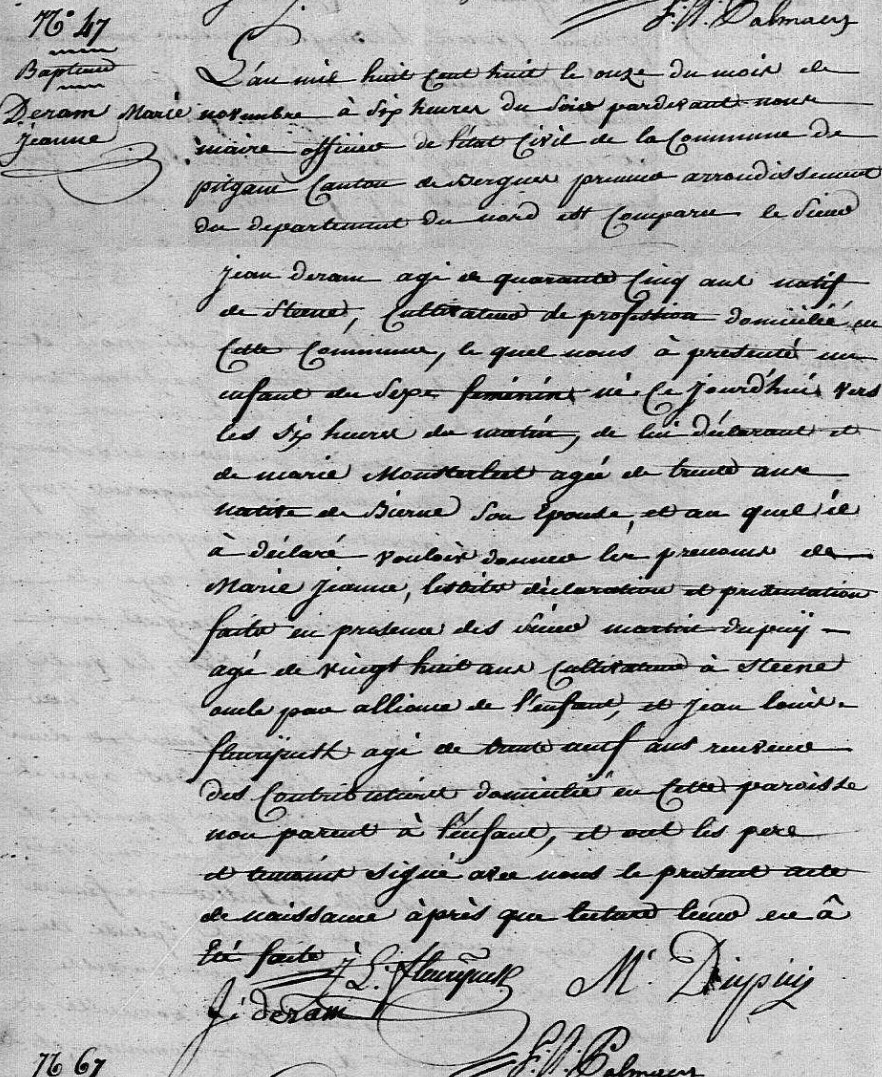 N.º 47
Baptême
Deram Marie
jeanne
L'an mil huit cent huit le onze du mois de
novembre à six heures du soir pardevant nous
maire officier de l'état Civil de la Commune de
pitgam Canton de Bergues premier arrondissement
du departement du nord est Comparu le Sieur
jean deram agé de quarante Cinq ans natif
de Steene, Cultivateur de profession domicilié en
Cette Commune, le quel nous à presenté un
enfant du Sexe feminin né Ce jourd'hui vers
les six heures du matin, de lui déclarant et
de marie Monsterleet agée de trente ans
native de Bierne Son Epouse, et au quel il
à déclaré vouloir donner les prenoms de
Marie jeanne, lesdites déclaration et presentation
faites en presence des Sieurs martin dupuij
agé de vingt huit ans Cultivateur à Steene
oncle par alliance de l'enfant, et jean louis
fleurijnck agé de trente neuf ans receveur
des Contributions domicilié en Cette paroisse
non parent à l'enfant, et ont les pere
et temoins signé avec nous le present acte
de naissance àprès que lecture leur en â
Eté faite
J. L. fleurijnck M. Dupuij
J: deram
N.º 67